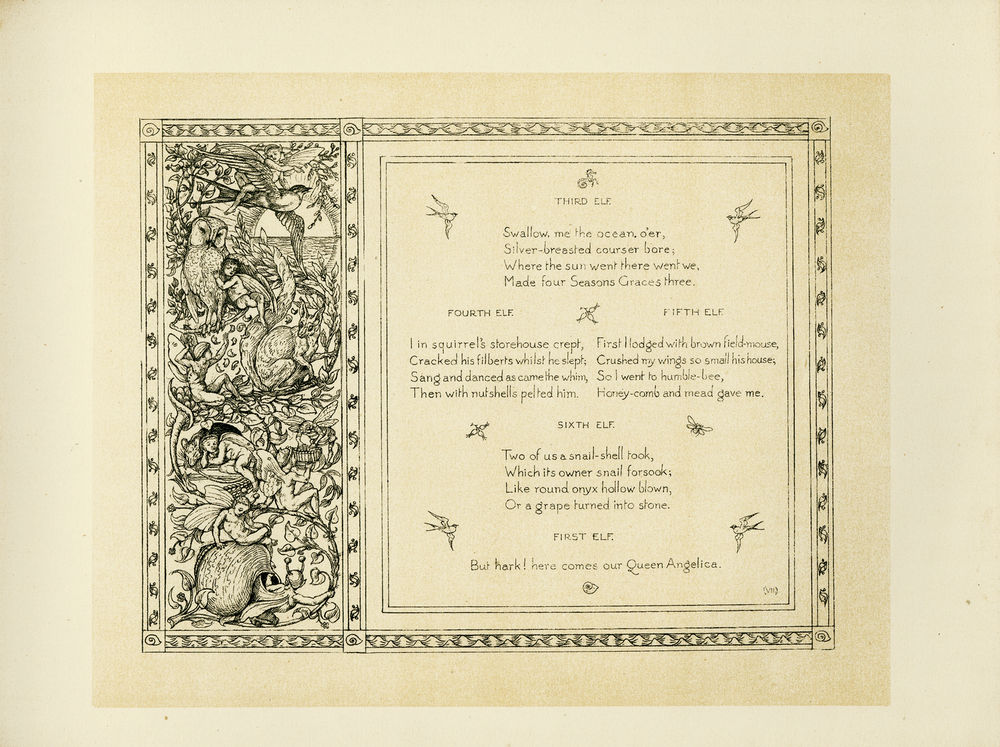 THIRD ELF.
Swallow, me the ocean, o'er,
Silver-breasted courser bore;
Where the sun went there went we,
Made four Seasons Graces three.
FOURTH ELF.
I in squirrel's storehouse crept,
Cracked his filberts whilst he slept;
Sang and danced as came the whim,
Then with nutshells pelted him.
FIFTH ELF.
First I lodged with brown field-mouse,
Crushed my wings so small his house;
So I went to humble-bee,
Honey-comb and mead gave me.
SIXTH ELF.
Two of us a snail-shell took,
Which its owner snail forsook;
Like round onyx hollow blown,
Or a grape turned into stone.
FIRST ELF.
But hark! here comes our Queen Angelica.
(VIII)